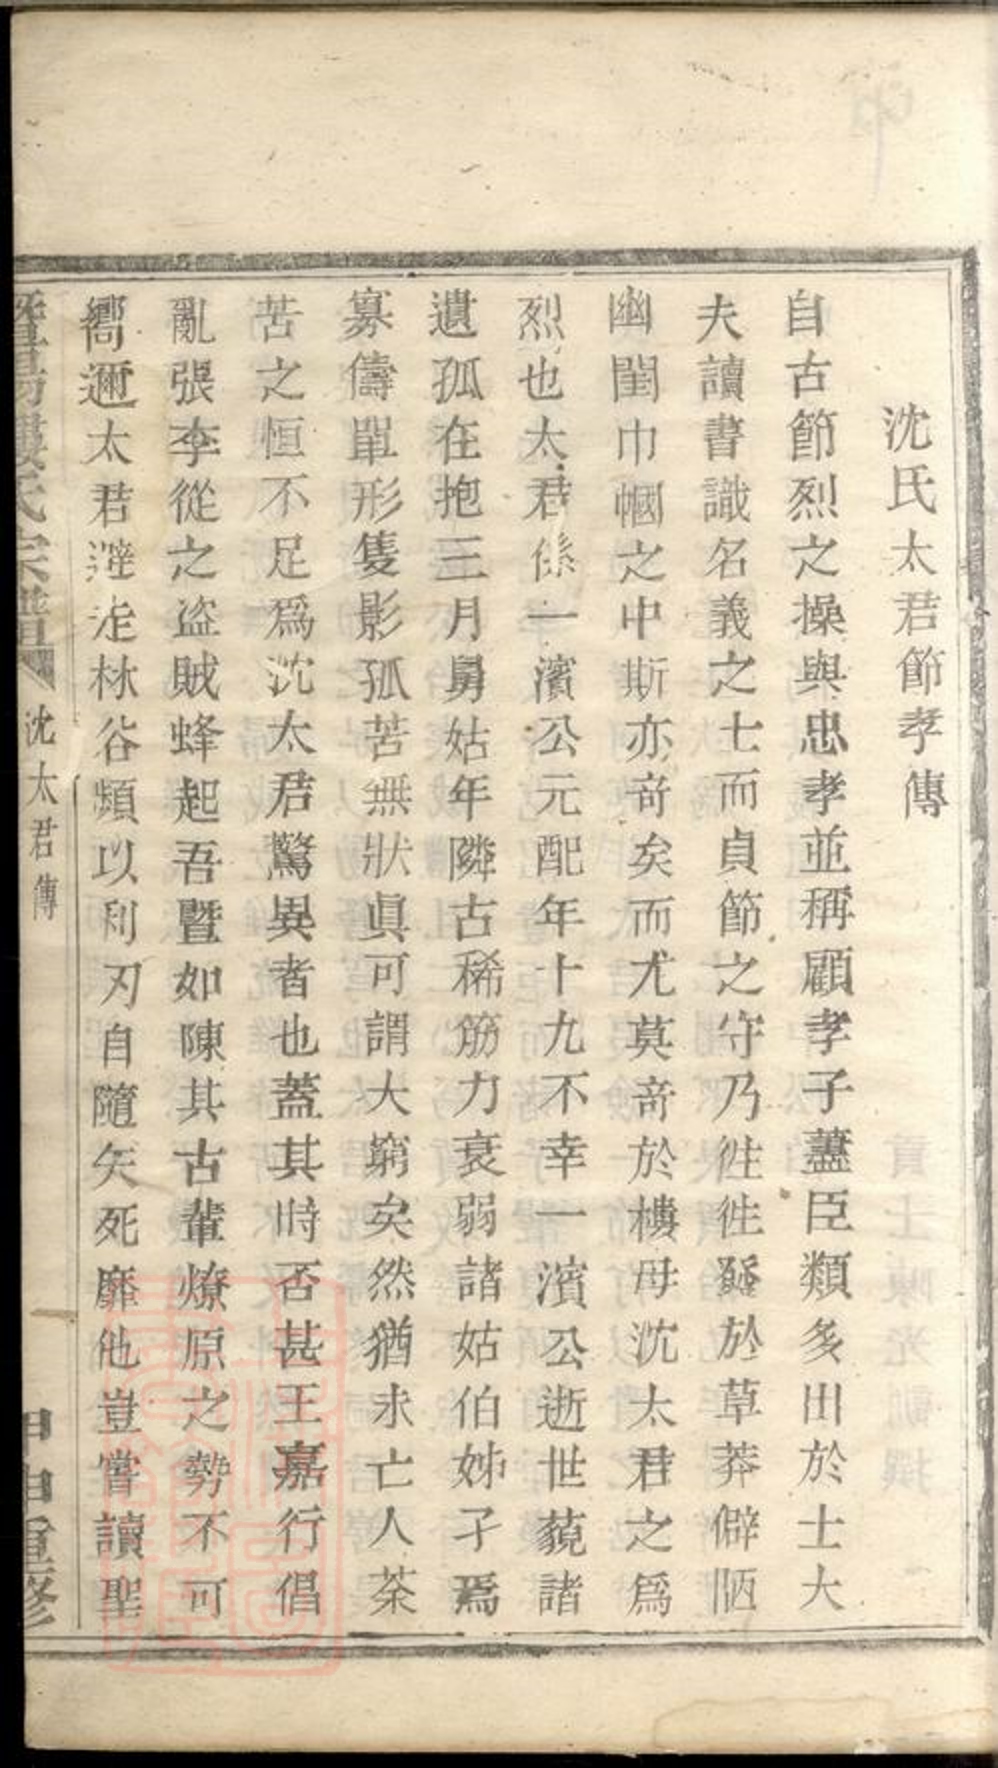 沈氏太君節孝傳
自古節烈之操與忠孝並稱顧孝子藎臣類多出於士大
夫讀書識名義之士而貞節之守乃徃徃發於草莽僻陋
幽閨巾幗之中斯亦竒矣而尤莫竒於樓母沈太君之爲
烈也太君係一濱公元配年十九不幸一濱公逝世藐諸
遺孤在抱三月舅姑年隣古稀筋力衰弱諸姑伯姊孑焉
寡儔單形隻影孤苦無狀眞可謂大窮矣然猶未亡人茶
苦之恒不足爲沈太君驚異者也蓋其時否甚王嘉行倡
亂張李從之盜賊蜂起吾暨如陳其古輩燎原之勢不可
嚮邇太君避走林谷頻以利刃自隨矢死靡他豈嘗讀聖
暨陽樓氏宗譜 沈太君傳 甲申重修